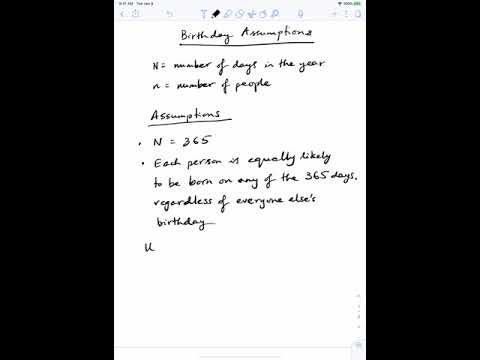 Birthday Assumptions
N = number of days in the year
n = number of people
Assumptions
• N = 365
• Each person is equally likely
to be born on any of the 365 days,
regardless of everyone else's
birthday